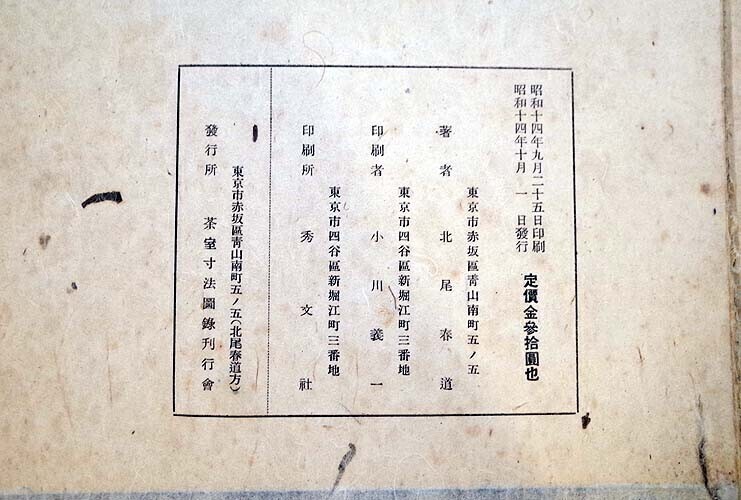 昭和十四年九月二十五日印刷
昭和十四年十月 一 日發行
定價金參拾圓也
東京市赤坂區靑山南町五ノ五
著者 北尾春道
東京市四谷區新堀江町三番地
印刷者 小川義一
東京市四谷區新堀江町三番地
印刷所 秀文社
東京市赤坂區靑山南町五ノ五(北尾春道方)
發行所 茶室寸法圖錄刊行會